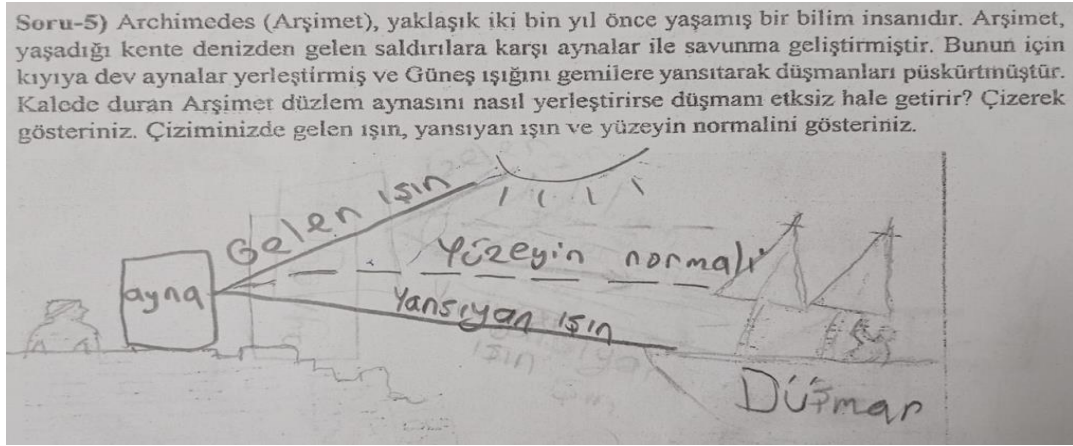 Soru-5) Archimedes (Arşimet), yaklaşık iki bin yıl önce yaşamış bir bilim insanıdır. Arşimet,
yaşadığı kente denizden gelen saldırılara karşı aynalar ile savunma geliştirmiştir. Bunun için
kıyıya dev aynalar yerleştirmiş ve Güneş ışığını gemilere yansıtarak düşmanları püskürtmüştür.
Kalede duran Arşimet düzlem aynasını nasıl yerleştirirse düşmanı etksiz hale getirir? Çizerek
gösteriniz. Çiziminizde gelen ışın, yansıyan ışın ve yüzeyin normalini gösteriniz.
Gelen ışın
Yüzeyin normali
ayna
Yansıyan ışın
ışın
Düşman